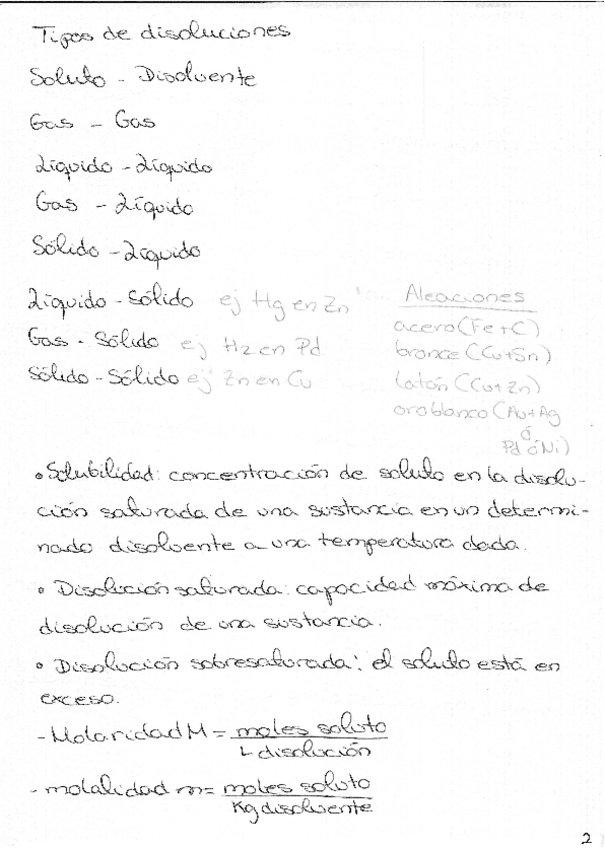 Tipos de disoluciones
Soluto - Disolvente
Gas - Gas
Líquido - Líquido
Gas - Líquido
Sólido - Líquido
Líquido - Sólido ej Hg en Zn
Gas - Sólido ej H2 en Pd
Sólido - Sólido ej Zn en Cu
Aleaciones
acero (Fe + C)
bronce (Cu + Sn)
latón (Cu + Zn)
oro blanco (Au + Ag
ó
Pd ó Ni)
• Solubilidad: concentración de soluto en la disolu-
ción saturada de una sustancia en un determi-
nado disolvente a una temperatura dada.
• Disolución saturada: capacidad máxima de
disolución de una sustancia.
• Disolución sobresaturada: el soluto está en
exceso.
- Molaridad M = moles soluto
L disolución
- molalidad m = moles soluto
Kg disolvente
2